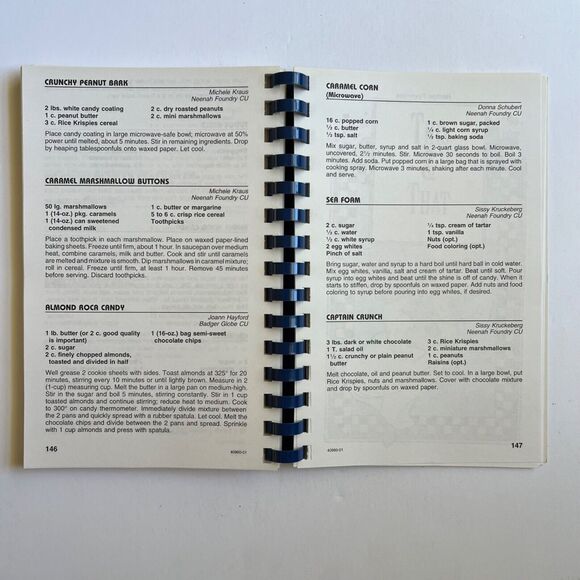 CRUNCHY PEANUT BARK
Michele Kraus
Neenah Foundry CU
2 lbs. white candy coating
1 c. peanut butter
3 c. Rice Krispies cereal
2 c. dry roasted peanuts
2 c. mini marshmallows
Place candy coating in large microwave-safe bowl; microwave at 50%
power until melted, about 5 minutes. Stir in remaining ingredients. Drop
by heaping tablespoonfuls onto waxed paper. Let cool.
CARAMEL MARSHMALLOW BUTTONS
Michele Kraus
Neenah Foundry CU
50 lg. marshmallows
1 (14-oz.) pkg. caramels
1 (14-oz.) can sweetened
condensed milk
1 c. butter or margarine
5 to 6 c. crisp rice cereal
Toothpicks
Place a toothpick in each marshmallow. Place on waxed paper-lined
baking sheets. Freeze until firm, about 1 hour. In saucepan over medium
heat, combine caramels, milk and butter. Cook and stir until caramels
are melted and mixture is smooth. Dip marshmallows in caramel mixture;
roll in cereal. Freeze until firm, at least 1 hour. Remove 45 minutes
before serving. Discard toothpicks.
ALMOND ROCA CANDY
Joann Hayford
Badger Globe CU
1 lb. butter (or 2 c. good quality
is important)
2 c. sugar
2 c. finely chopped almonds,
toasted and divided in half
1 (16-oz.) bag semi-sweet
chocolate chips
Well grease 2 cookie sheets with sides. Toast almonds at 325° for 20
minutes, stirring every 10 minutes or until lightly brown. Measure in 2
(1-cup) measuring cup. Melt the butter in a large pan on medium-high.
Stir in the sugar and boil 5 minutes, stirring constantly. Stir in 1 cup
toasted almonds and continue stirring; reduce heat to medium. Cook
to 300° on candy thermometer. Immediately divide mixture between
the 2 pans and quickly spread with a rubber spatula. Let cool. Melt the
chocolate chips and divide between the 2 pans and spread. Sprinkle
with 1 cup almonds and press with spatula.
146
40960-01
CARAMEL CORN
(Microwave)
Donna Schubert
Neenah Foundry CU
16 c. popped corn
½ c. butter
½ tsp. salt
1 c. brown sugar, packed
¼ c. light corn syrup
½ tsp. baking soda
Mix sugar, butter, syrup and salt in 2-quart glass bowl. Microwave,
uncovered, 2½ minutes. Stir. Microwave 30 seconds to boil. Boil 3
minutes. Add soda. Put popped corn in a large bag that is sprayed with
cooking spray. Microwave 3 minutes, shaking after each minute. Cool
and serve.
SEA FOAM
Sissy Kruckeberg
Neenah Foundry CU
2 c. sugar
½ c. water
½ c. white syrup
2 egg whites
Pinch of salt
¼ tsp. cream of tartar
1 tsp. vanilla
Nuts (opt.)
Food coloring (opt.)
Bring sugar, water and syrup to a hard boil until hard ball in cold water.
Mix egg whites, vanilla, salt and cream of tartar. Beat until soft. Pour
syrup into egg whites and beat until the shine is off of candy. When it
starts to stiffen, drop by spoonfuls on waxed paper. Add nuts and food
coloring to syrup before pouring into egg whites, if desired.
CAPTAIN CRUNCH
Sissy Kruckeberg
Neenah Foundry CU
3 lbs. dark or white chocolate
1 T. salad oil
1½ c. crunchy or plain peanut
butter
3 c. Rice Krispies
2 c. miniature marshmallows
1 c. peanuts
Raisins (opt.)
Melt chocolate, oil and peanut butter. Set to cool. In a large bowl, put
Rice Krispies, nuts and marshmallows. Cover with chocolate mixture
and drop by spoonfuls on waxed paper.
40960-01
147